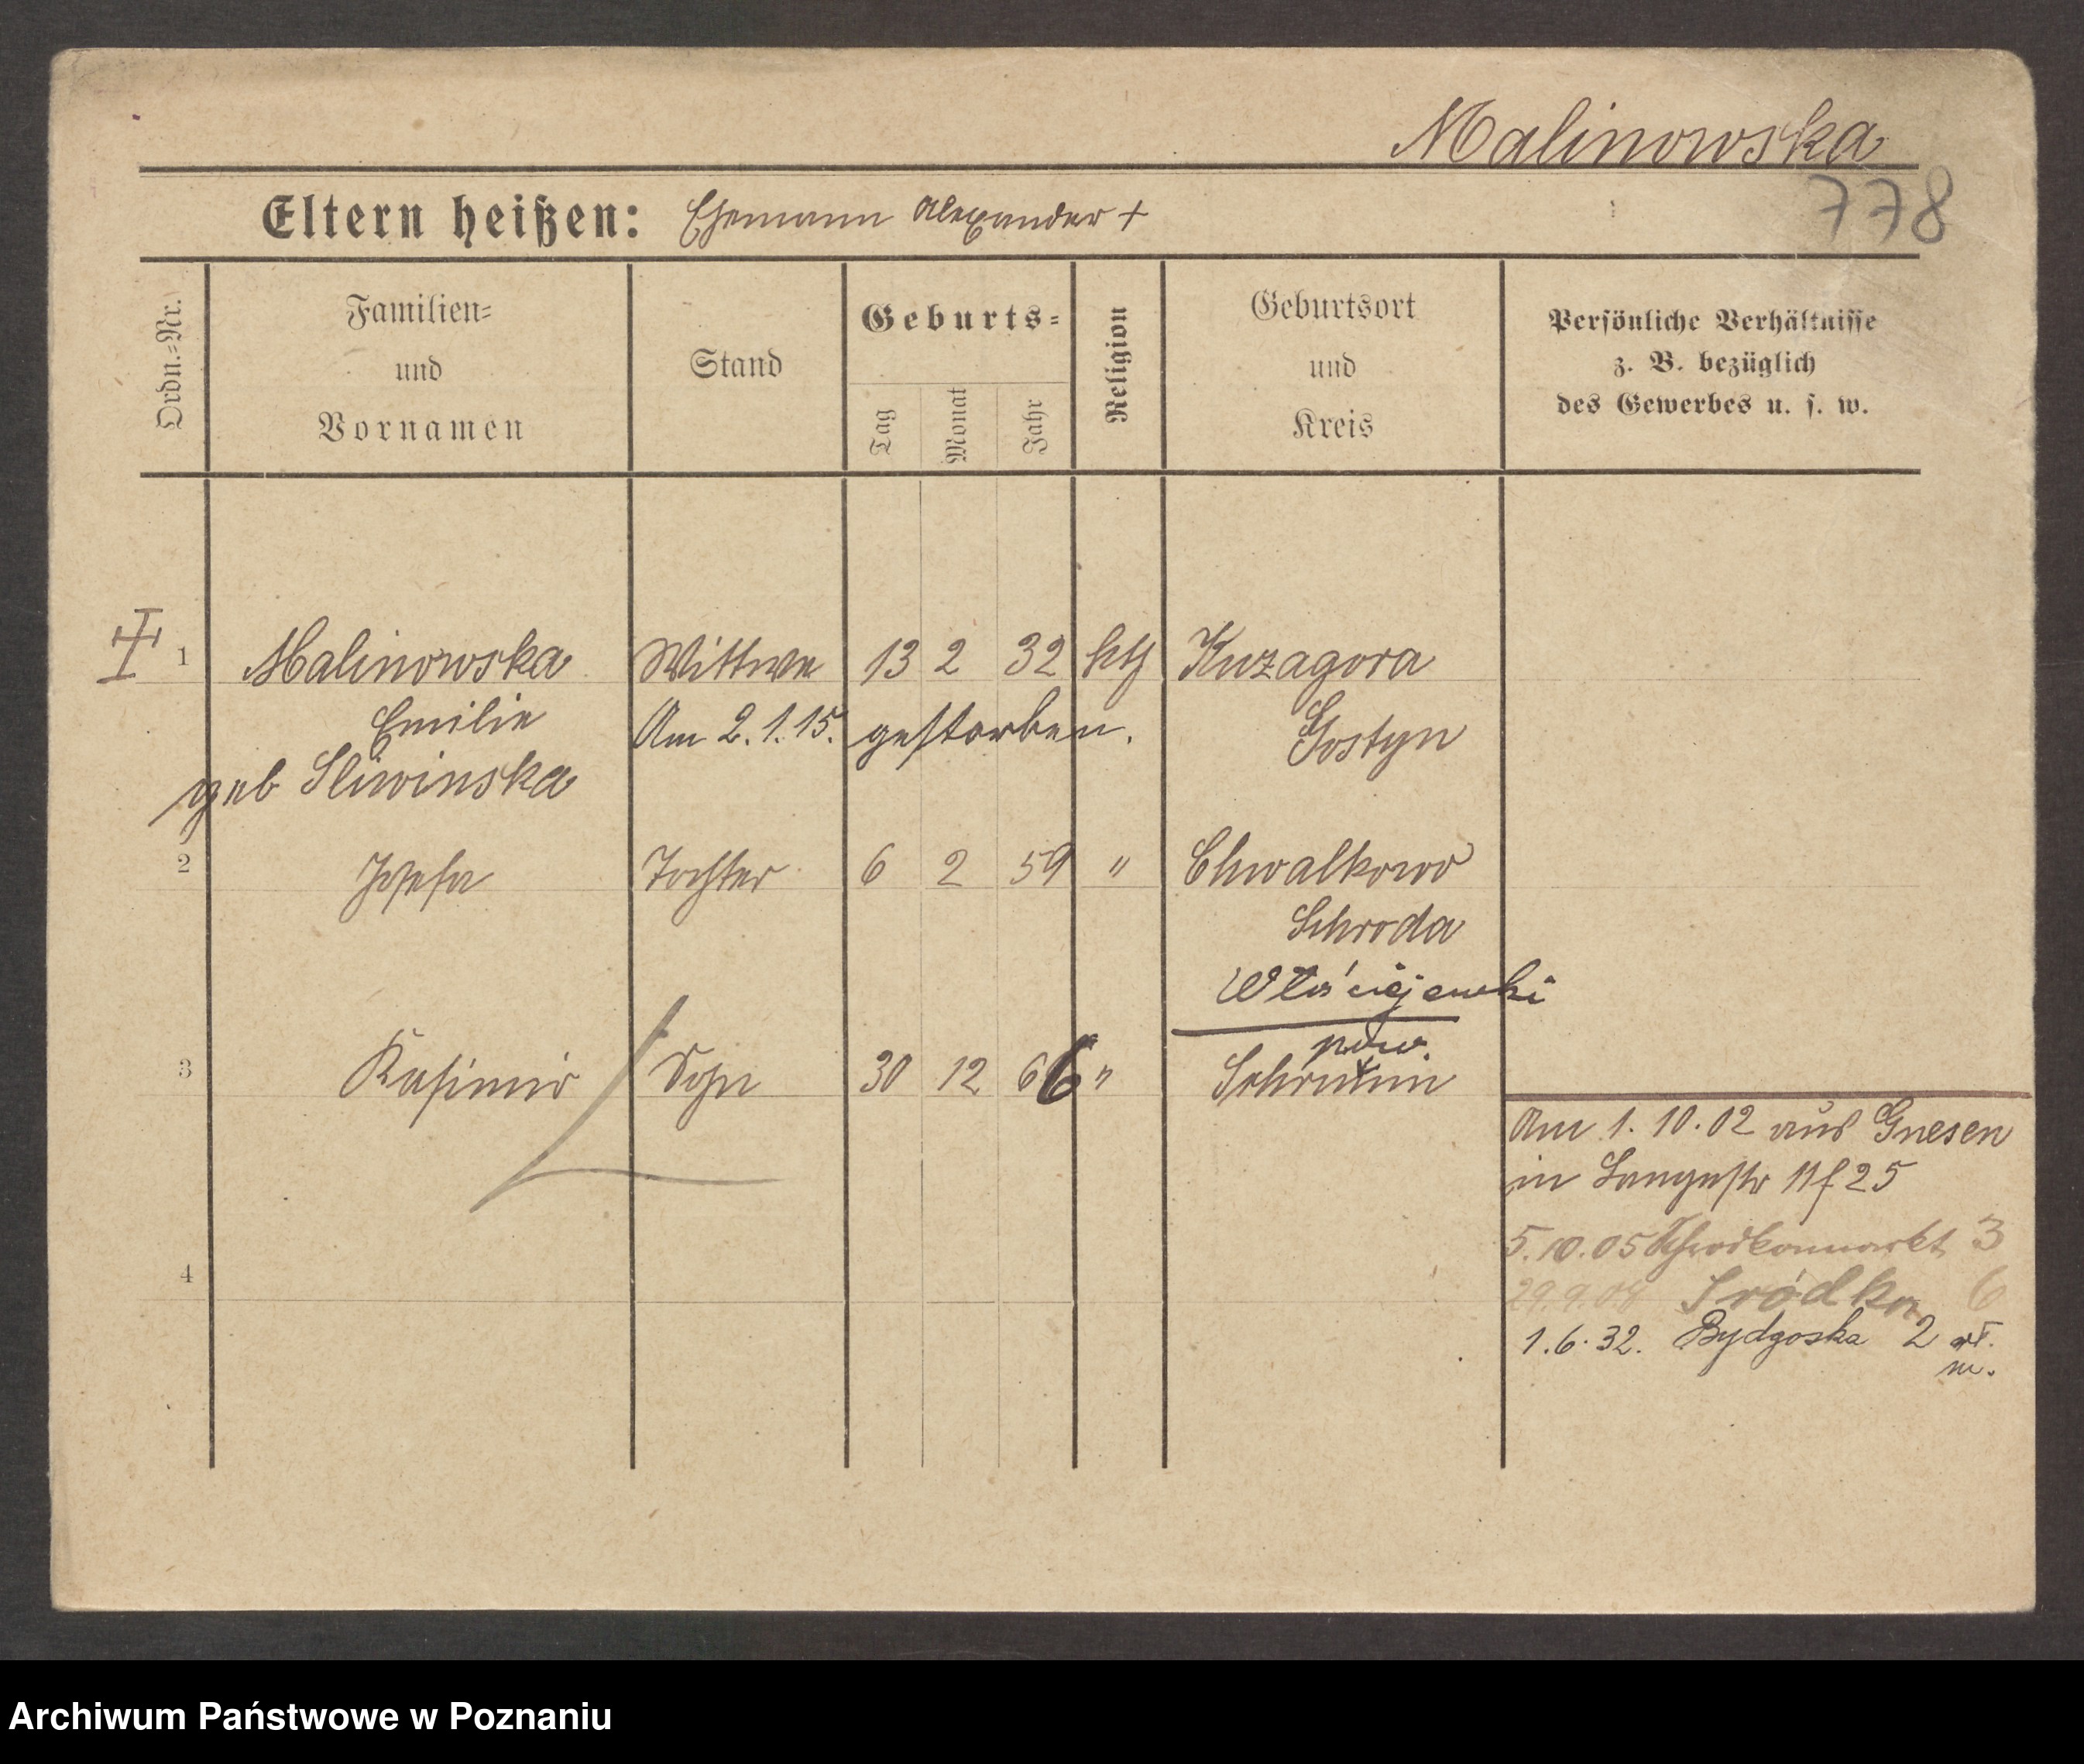 Malinowska
778
Eltern heißen: Ehemann Alexander +
Ordn.-Nr.
Familien-
und
Vornamen
Stand
Geburts-
Tag
Monat
Jahr
Religion
Geburtsort
und
Kreis
Persönliche Verhältnisse
z. B. bezüglich
des Gewerbes u. s. w.
1 Malinowska Wittwe 13 2 32 kth
Emilie Am 2.1.15. gestorben. Gostyn
geb Sliwinska
2 Josefa Tochter 6 2 59 " Chwalkowo
Schroda
Włościejewki
pow.
3 Kasimir Sohn 30 12 66 " Schrimm
Am 1.10.02 aus Gnesen
in Langestr 11 f 25
5.10.05 3
29.9.09 Sródka 6
4
1.6.32. Bydgoska 2 wł.
m.
Archiwum Państwowe w Poznaniu